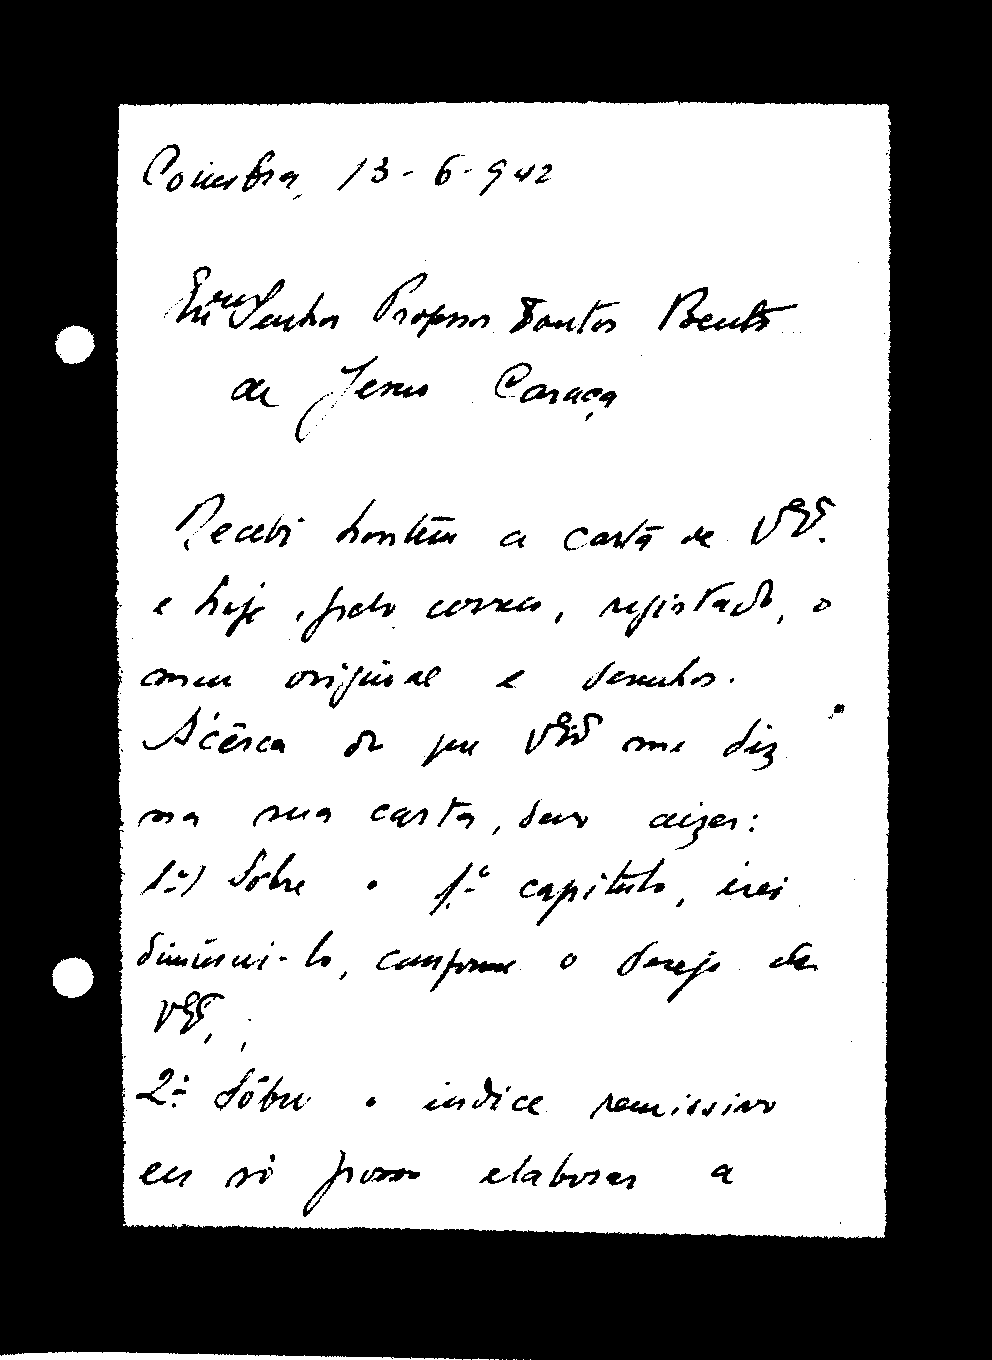 Coimbra, 13-6-942
Exmo Senhor Professor Doutor Bento
de Jesus Caraça
Recebi hontem a carta de V. Exª.
e hoje, pelo correio, registado, o
meu original e desenhos.
Àcêrca do que V. Exª me diz
na sua carta, devo dizer:
1º) Sôbre o 1º capítulo, irei
diminui-lo, conforme o desejo de
V. Exª.;
2º Sôbre o indice remissivo
eu só posso elaborar a